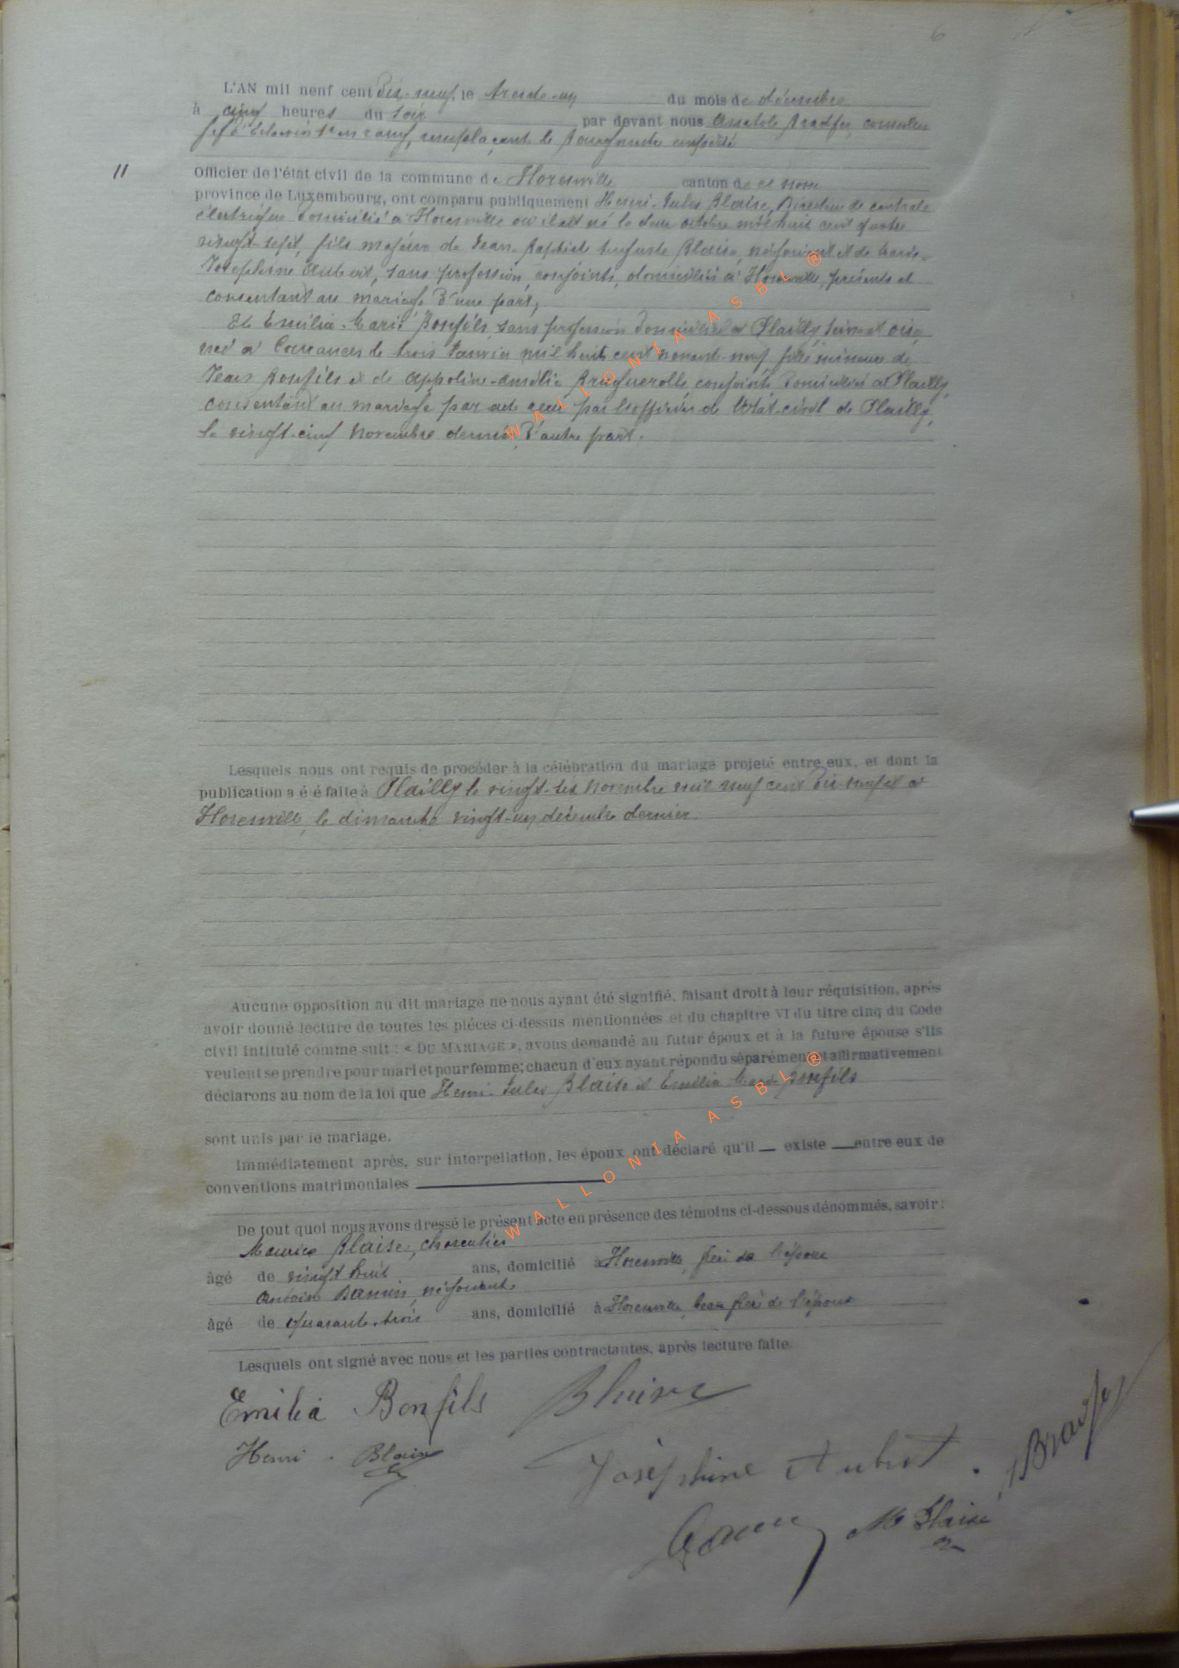 6
L'AN mil neuf cent dix-neuf, le trente-un du mois de décembre
à cinq heures du soir par devant nous Anatole Bradfer, conseiller
remplaçant le Bourgmestre empêché
11
Officier de l'état civil de la commune de Florenville canton de ce nom
province de Luxembourg, ont comparu publiquement Henri-Jules Blaise, Directeur de centrale
électrique domicilié à Florenville où il est né le deux octobre mil huit cent quatre
vingt-sept, fils majeur de Jean-Baptiste Auguste Blaise, négociant et de Marie-
Joséphine Aubert, sans profession, conjoints, domiciliés à Florenville, présents et
consentant au mariage d'une part,
Et Emilia-Marie Bonfils, sans profession domiciliée à Plailly
née à le trois Janvier mil huit cent nonante-neuf fille mineure de
Jean Bonfils et de Appoline-Amélie Bruguerolle conjoints domiciliés à Plailly
consentant au mariage par acte reçu par l'officier de l'état-civil de Plailly,
le vingt-cinq novembre dernier, d'autre part.
Lesquels nous ont requis de procéder à la célébration du mariage projeté entre eux, et dont la
publication a é é faite à Plailly le vingt-six novembre mil neuf cent dix-neuf et à
Florenville, le dimanche vingt-un décembre dernier.
Aucune opposition au dit mariage ne nous ayant été signifié, faisant droit à leur réquisition, après
avoir donné lecture de toutes les pièces ci-dessus mentionnées et du chapitre VI du titre cinq du Code
civil intitulé comme suit : « DU MARIAGE », avons demandé au futur époux et à la future épouse s'ils
veulent se prendre pour mari et pour femme; chacun d'eux ayant répondu séparément et affirmativement
déclarons au nom de la loi que Henri-Jules Blaise et Emilia-Marie Bonfils
sont unis par le mariage.
Immédiatement après, sur interpellation, les époux ont déclaré qu'il — existe — entre eux de
conventions matrimoniales
De tout quoi nous avons dressé le présent acte en présence des témoins ci-dessous dénommés, savoir :
Maurice Blaise, charcutier
âgé de vingt huit ans, domicilié à Florenville, frère de l'époux
négociant
âgé de quarante-trois ans, domicilié à Florenville, beau frère de l'époux
Lesquels ont signé avec nous et les parties contractantes, après lecture faite.
Emilia Bonfils Blaise
Henri Blaise
Joséphine Aubert
M Blaise
Bradfer
WALLONIA ASBL ®
WALLONIA ASBL ®